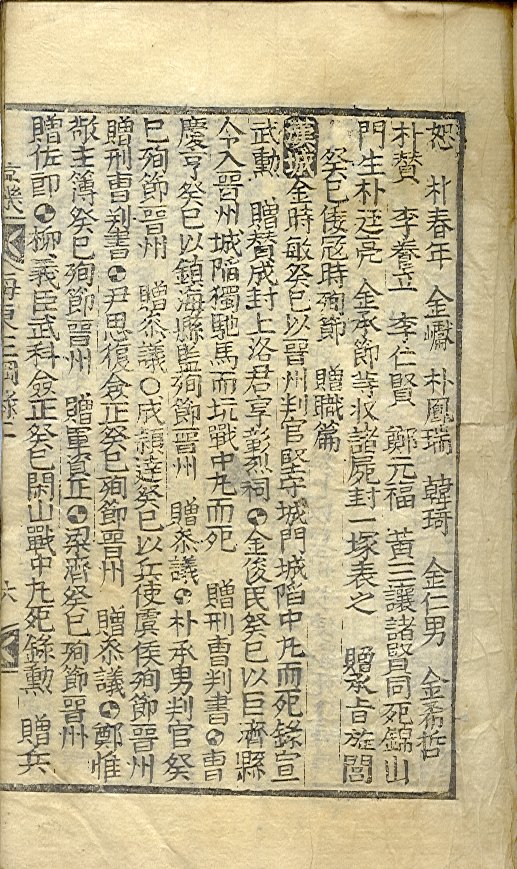 恕 朴春年 金嶰 朴鳳瑞 韓琦 金仁男 金希哲
朴賛 李養立 李仁賢 鄭元福 黃三讓諸賢同死錦山
門生朴廷亮 金承節等收諸屍封一塚表之 贈承旨旌閭
癸巳倭冦時殉節 贈職篇
漢城 金時敏癸巳以晉州判官堅守城門城陷中丸而死錄宣
武勳 贈賛成封上洛君享彰烈祠 金俊民癸巳以巨濟縣
令入晉州城陷獨馳馬而坑戰中丸而死 贈刑曹判書 曹
慶亨癸巳以鎮海縣監殉節晉州 贈叅議 朴承男判官癸
巳殉節晉州 贈叅議〇成頴達癸巳以兵使虞侯殉節晉州
贈刑曹判書 尹思復僉正癸巳殉節晉州 贈叅議 鄭惟
敬主簿癸巳殉節晉州 贈軍資正 梁濟癸巳殉節晉州
贈佐郎 柳義臣武科僉正癸巳閑山戰中丸死錄勳 贈兵
京畿 海東三綱錄 六